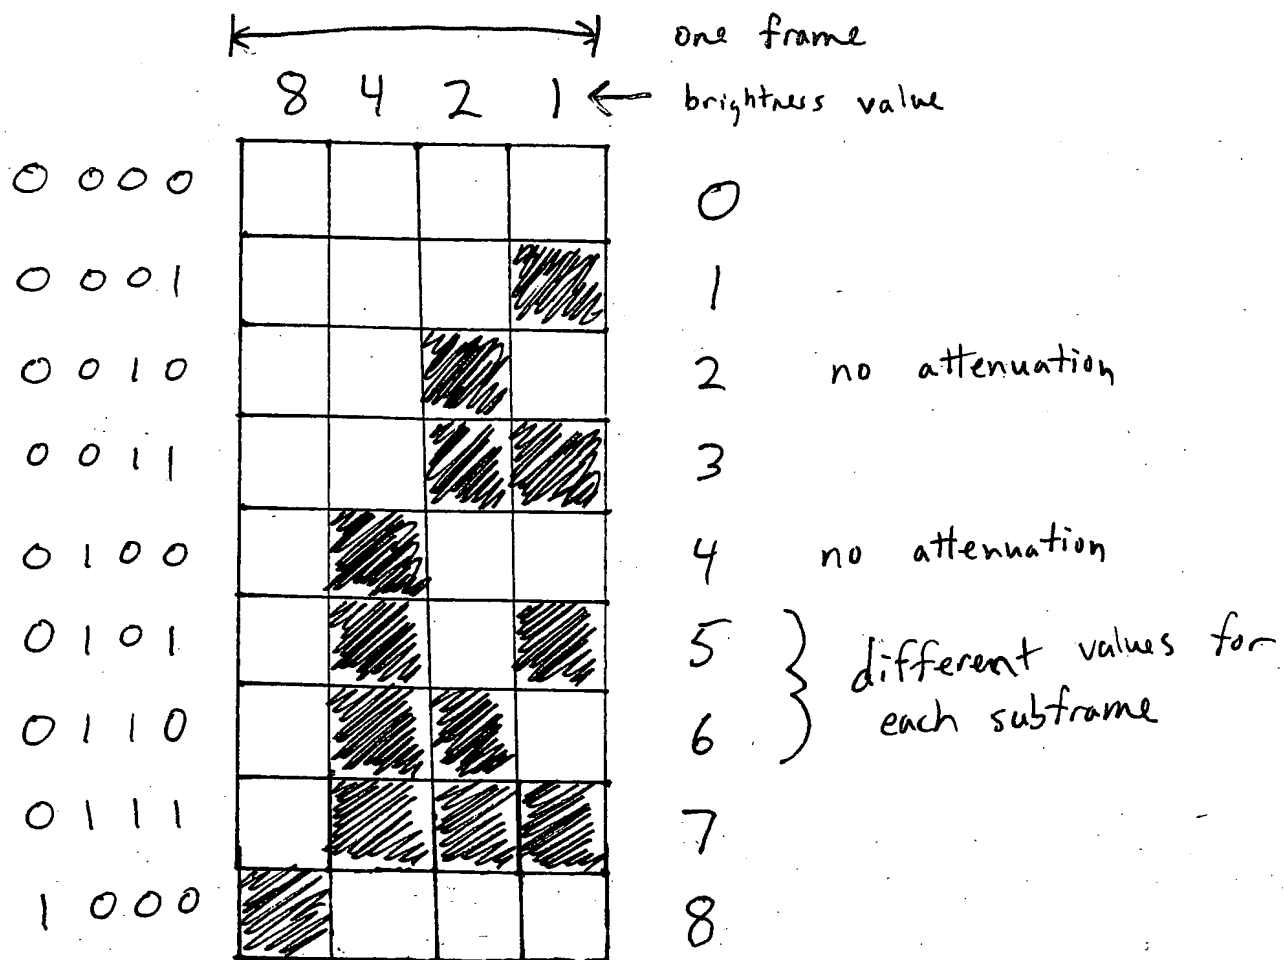 one frame
8 4 2 1 ← brightness value
0 0 0 0 0
0 0 0 1 1
0 0 1 0 2 no attenuation
0 0 1 1 3
0 1 0 0 4 no attenuation
0 1 0 1 5 different values for
0 1 1 0 6 each subframe
0 1 1 1 7
1 0 0 0 8